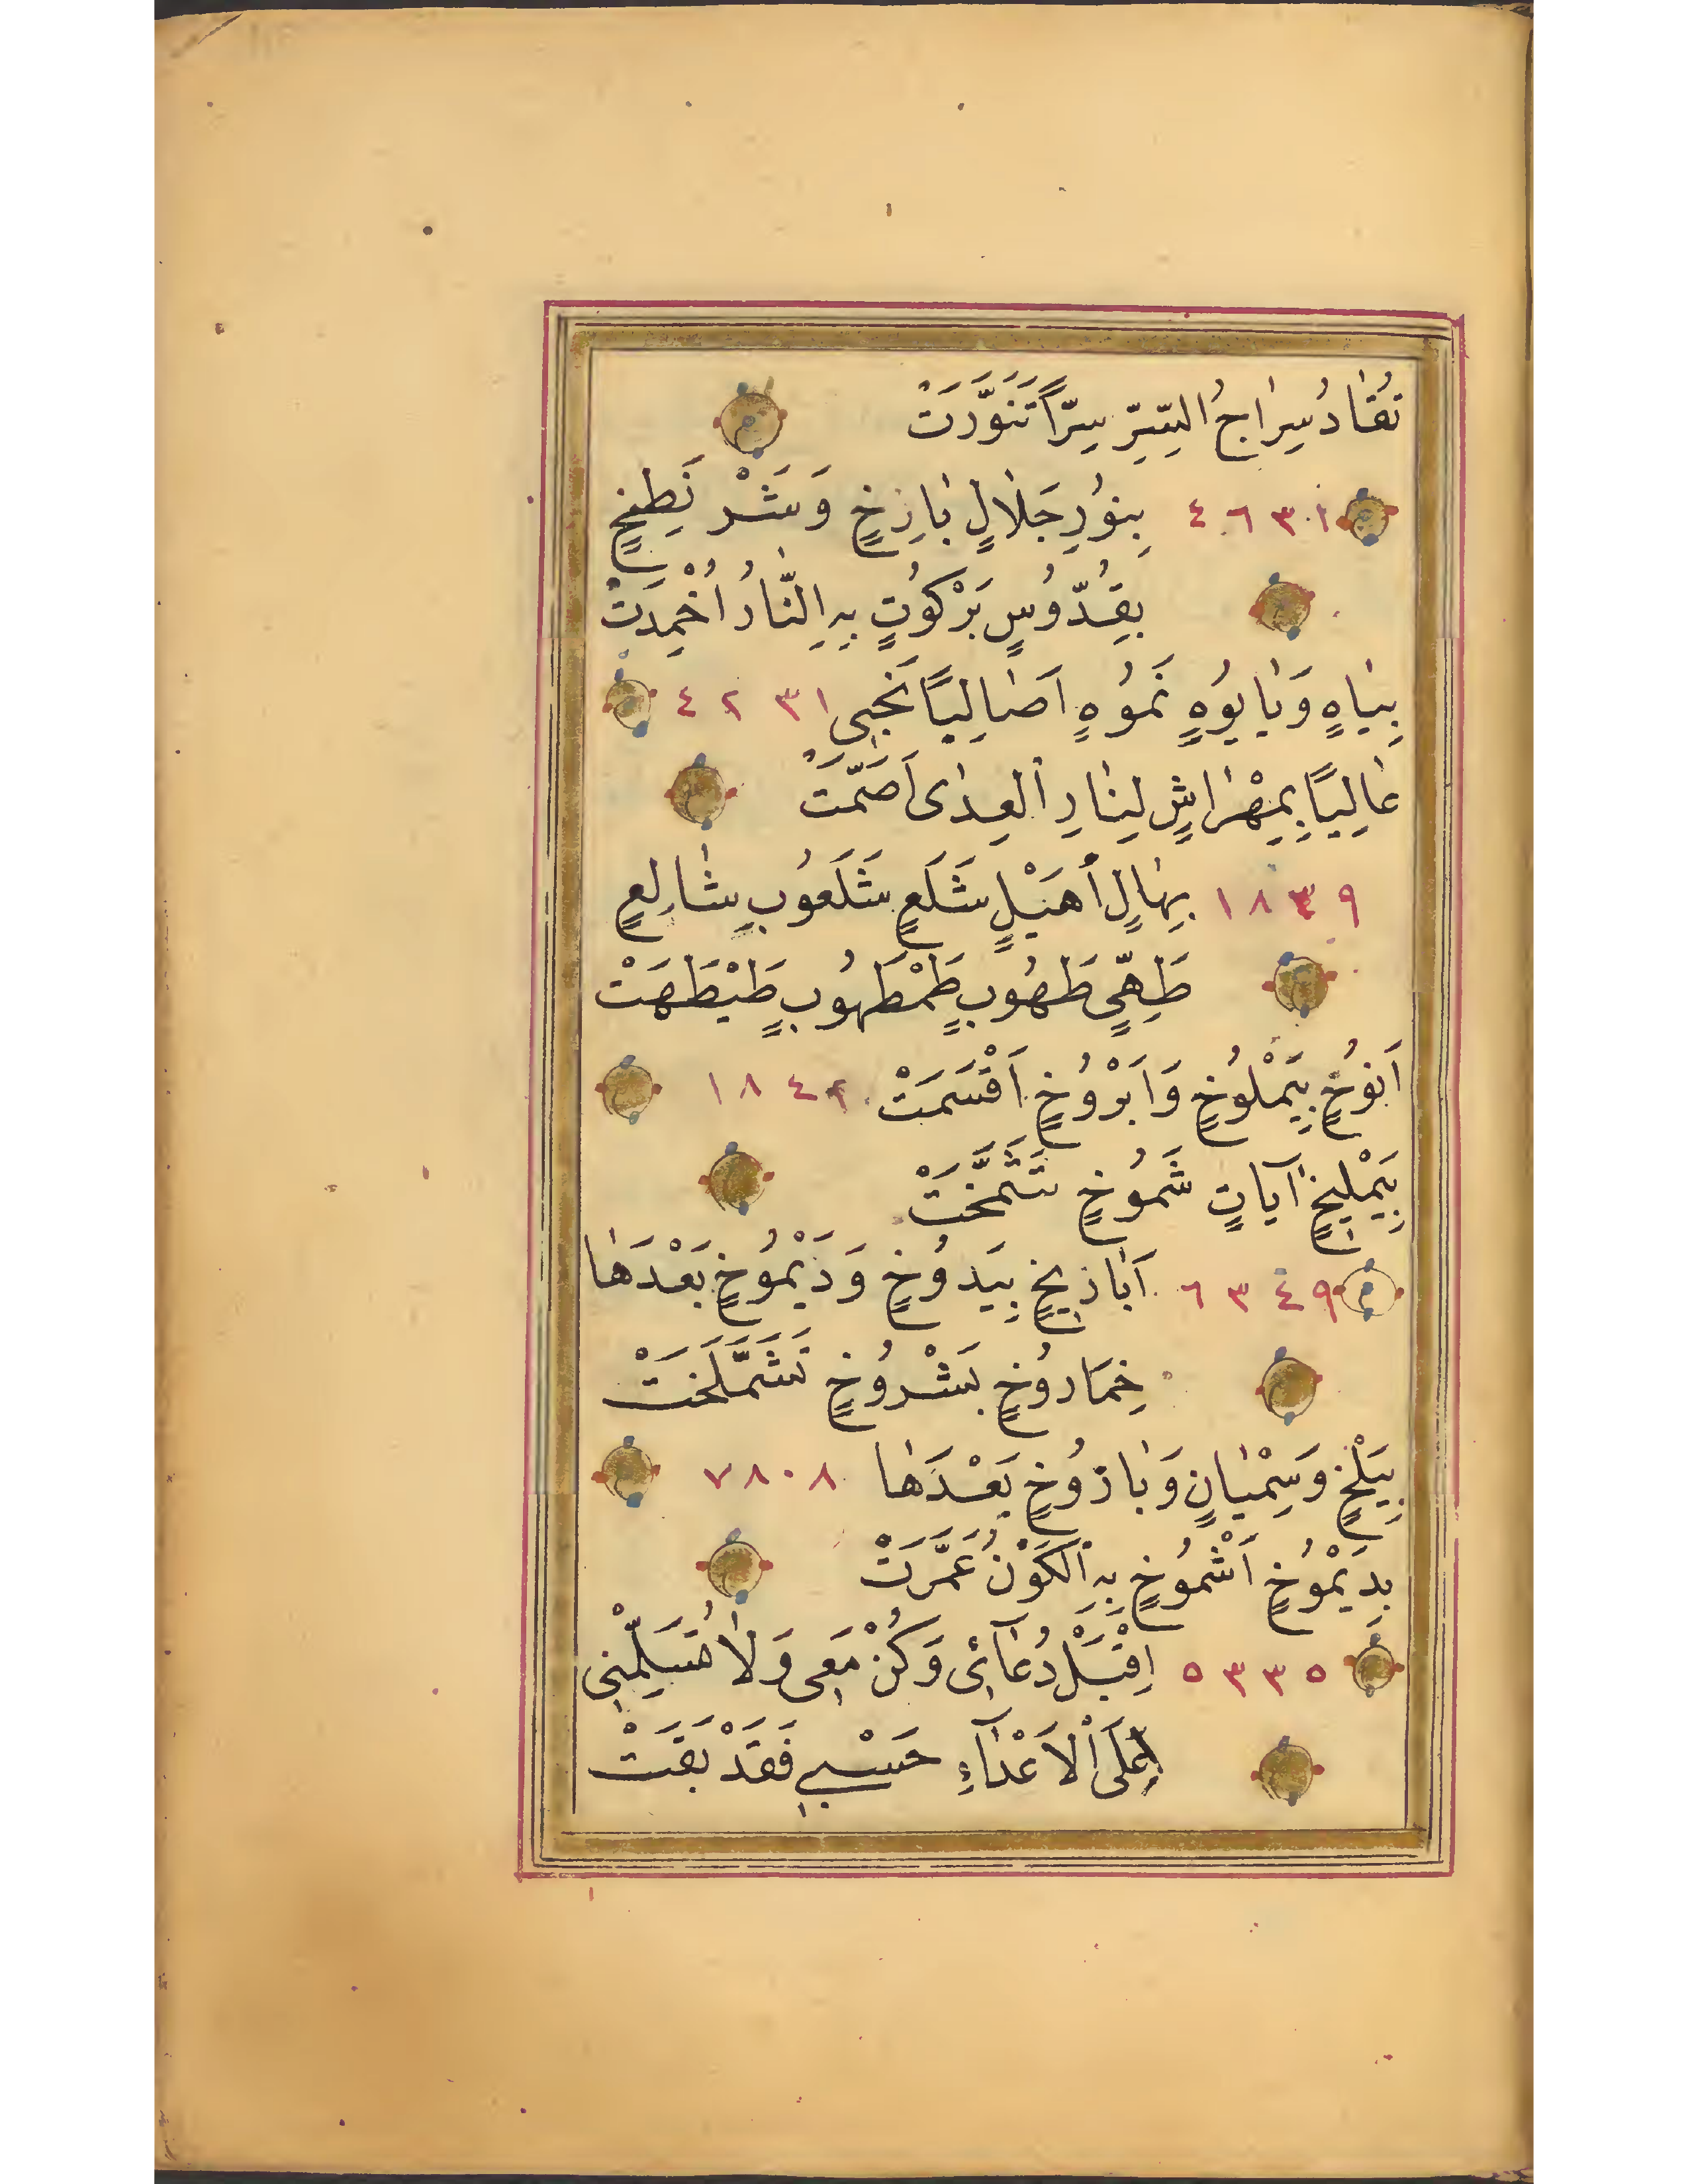 تُقَادُ سِرَاجُ السِّرِّ سِرّاً تَنَوَّرَتْ
٤٦٣١ بِنُورِ جَلَالٍ بَازِخٍ وَشَرْ نَطِخٍ
بِقُدُّوسٍ بَرْكُوتٍ بِهِ النَّارُ أُخْمِدَتْ
بِيَاهٍ وَيَا يُوهٍ نَمُوهٍ اَصَالِيًا نَجِّنِى ٤٢٣١
عَالِيًا بِمِهْرَاشٍ لِنَارِ الْعِدٰى اَصَمَّتْ
١٨٣٩ بِهَالٍ أَهَيْلٍ شَلَعٍ شَلَعُوبٍ شَالِعٍ
طَهِّىٍ طَهُوبٍ طَمْطَهُوبٍ طَيْطَهَتْ
اَنُوخٍ بِيَمْلُوخٍ وَابْرُوخٍ اَقْسَمَتْ ١٨٤٢
بِيَمْلِيخٍ آيَاتٍ شَمُوخٍ تَشَمَّخَتْ
٦٣٤٩ اَبَاذِيخٍ بِيَدُوخٍ وَذَيْمُوخٍ بَعْدَهَا
خِمَارُوخٍ بَشْرُوخٍ تَشَمَّلَخَتْ
بِبَلْخٍ وَسِمْيَانٍ وَبَازُوخٍ بَعْدَهَا ٧٨٠٨
بِدَيْمُوخٍ اَشْمُوخٍ بِهِ الْكَوْنُ عُمِّرَتْ
٥٣٣٥ اِقْبَلْ دُعَآئِى وَكُنْ مَعِى وَلَا تُسَلِّمْنِى
عَلَى الْاَعْدَآءِ حَسْبِى فَقَدْ بَقَتْ